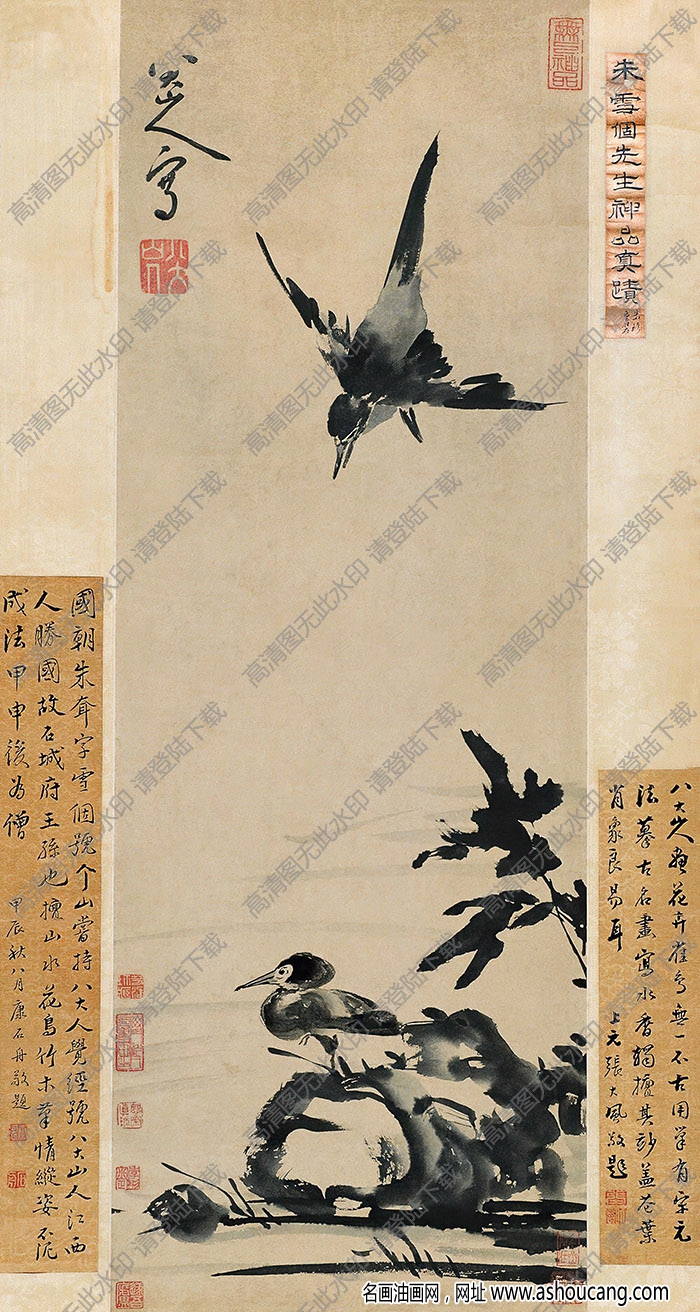 八大山人寫
朱雪個先生神品真蹟
國朝朱耷字雪個號个山嘗持八大人覺經號八大山人江西
人勝國故石城府王孫也擅山水花鳥竹木筆情縱姿不泥
成法甲申後為僧
甲辰秋八月康石舟敬題
八大山人畫花卉雀鳥無一不古用筆有宋元
法摹古名畫寫水香獨擅其妙蓋花葉
肖象良易耳
上元張大風敬題
高清图无此水印 请登陆下载
名画油画网，网址 www.ashoucang.com